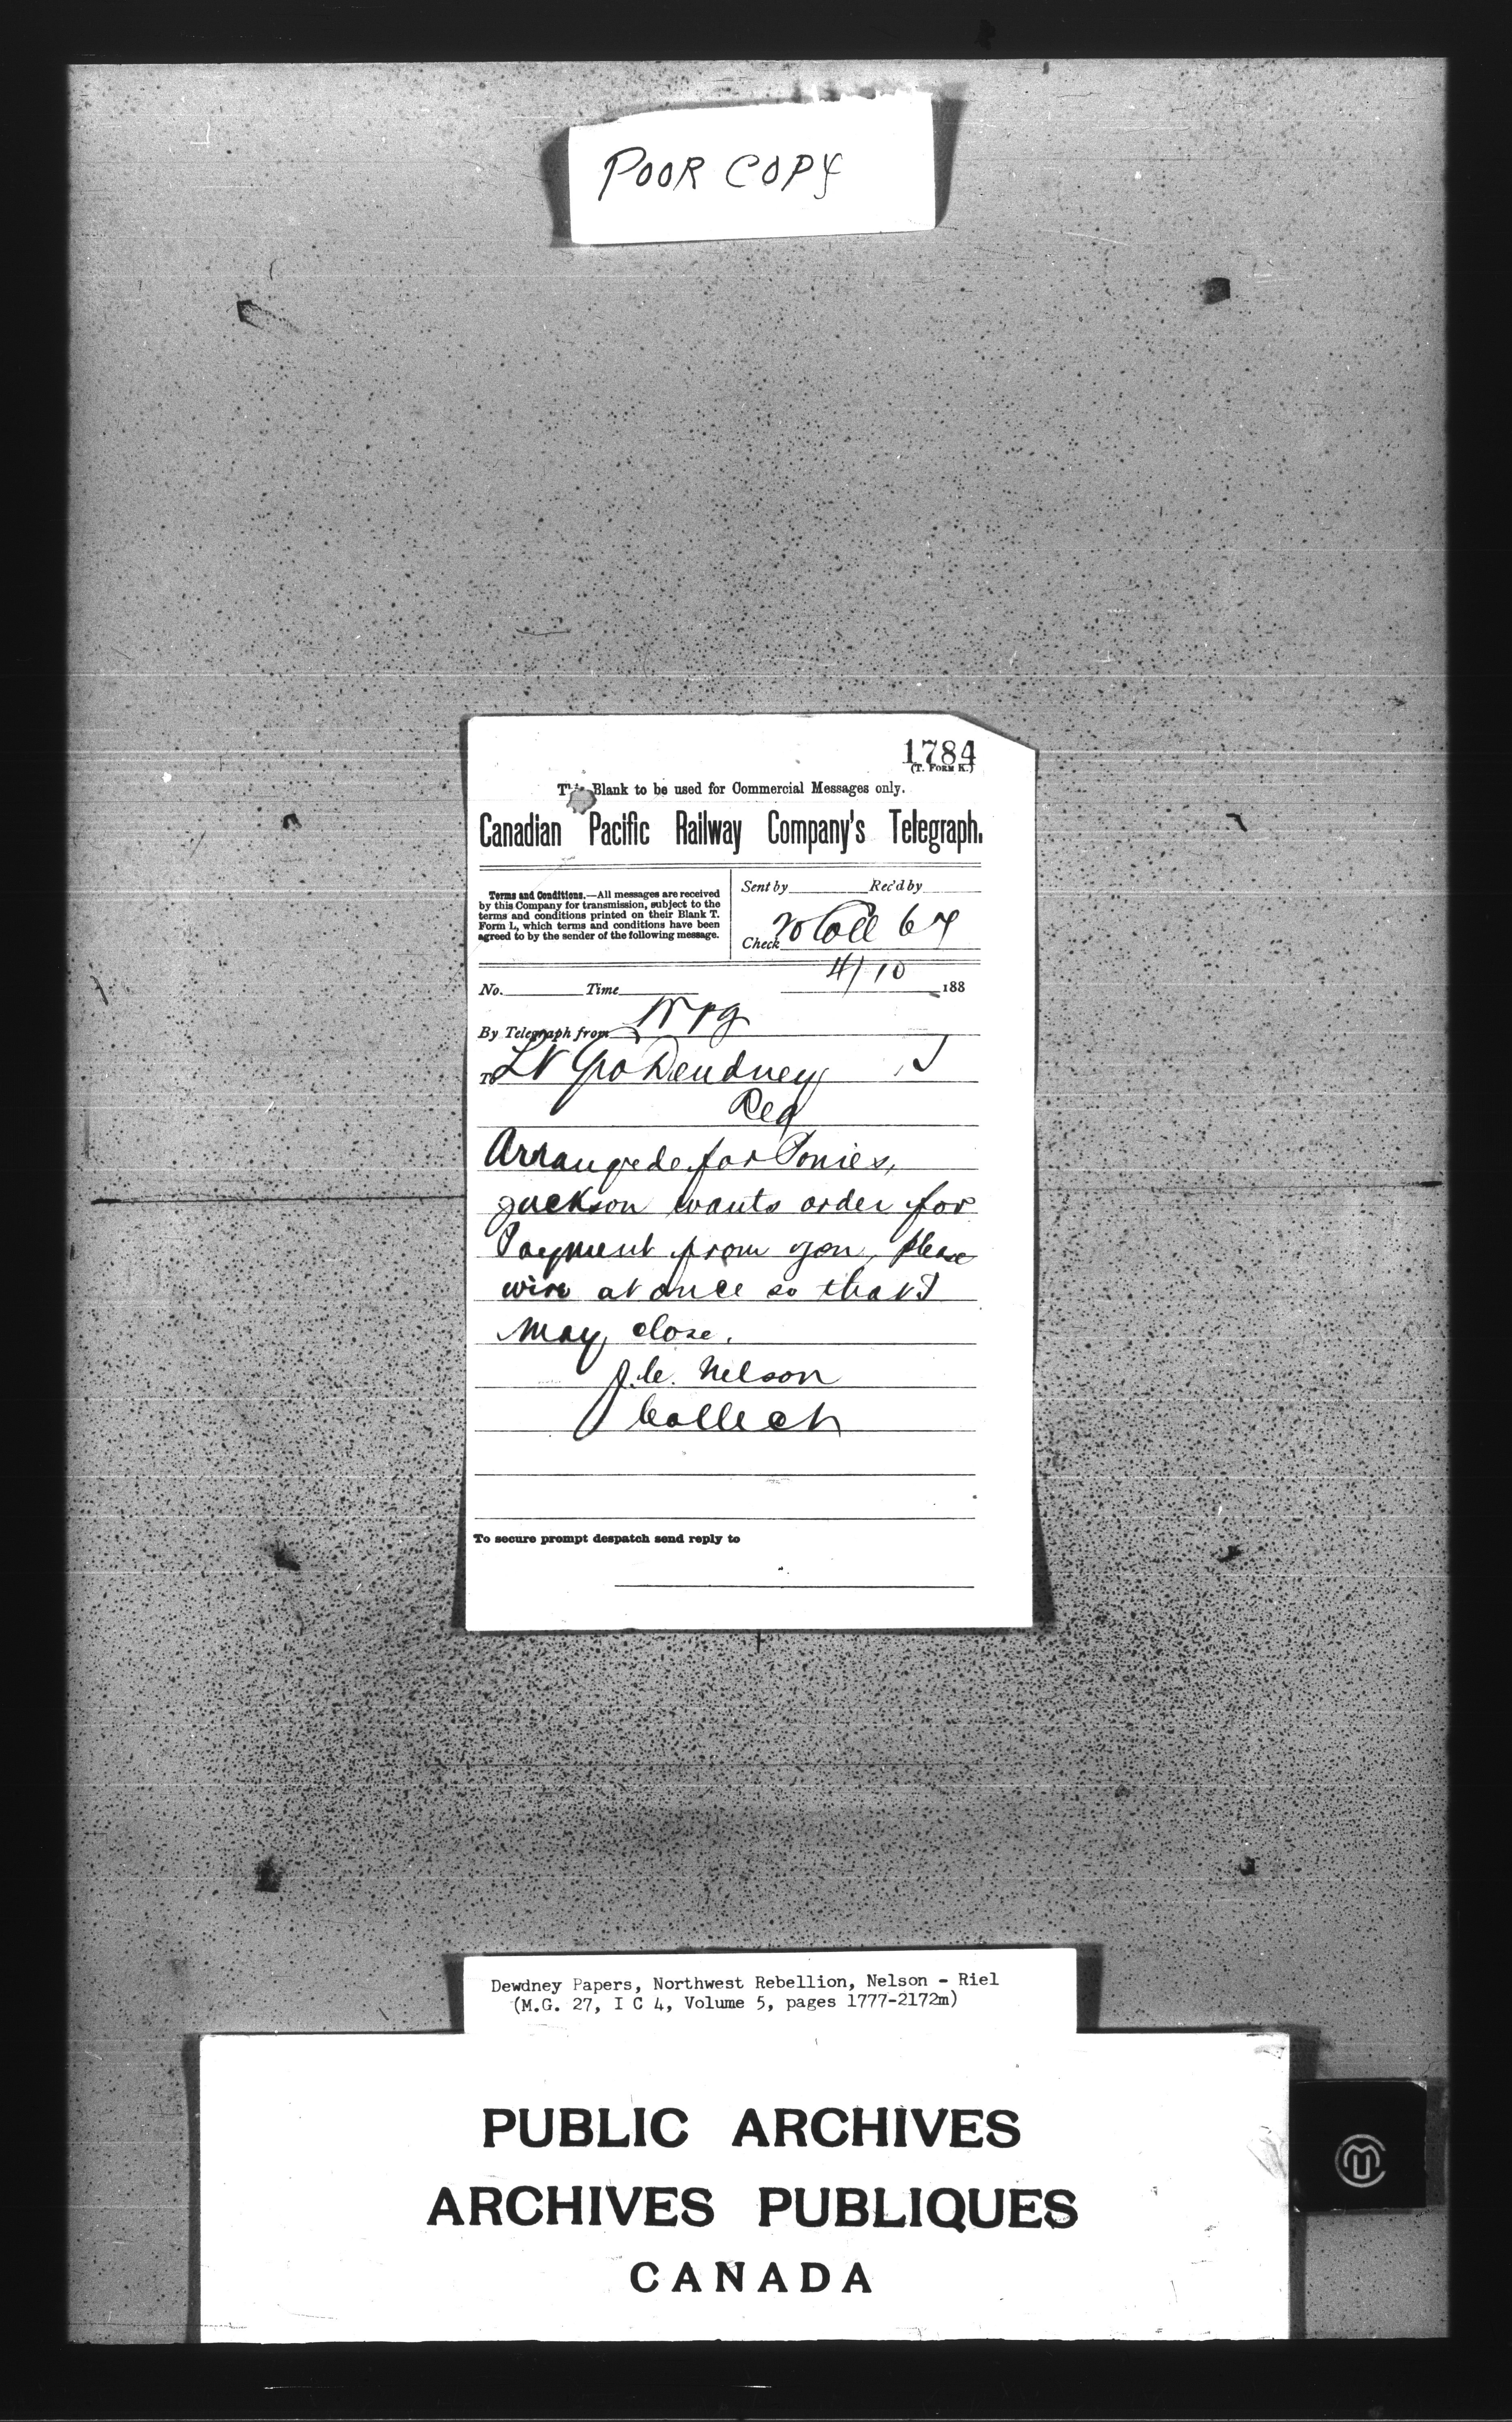 POOR COPY
1784
(T. FORM K.)
This Blank to be used for Commercial Messages only.
Canadian Pacific Railway Company's Telegraph.
Terms and Conditions.—All messages are received
by this Company for transmission, subject to the
terms and conditions printed on their Blank T.
Form L, which terms and conditions have been
agreed to by the sender of the following message.
Sent by Rec'd by
Check 20 Coll 67
4/10
No. Time 188
By Telegraph from Wpg
To Lt Gov Dewdney
Reg
Arranged for Ponies,
Jackson wants order for
Payment from you, please
wire at once so that I
may close.
J.C. Nelson
Collect
To secure prompt despatch send reply to
Dewdney Papers, Northwest Rebellion, Nelson - Riel
(M.G. 27, I C 4, Volume 5, pages 1777-2172m)
PUBLIC ARCHIVES
ARCHIVES PUBLIQUES
CANADA